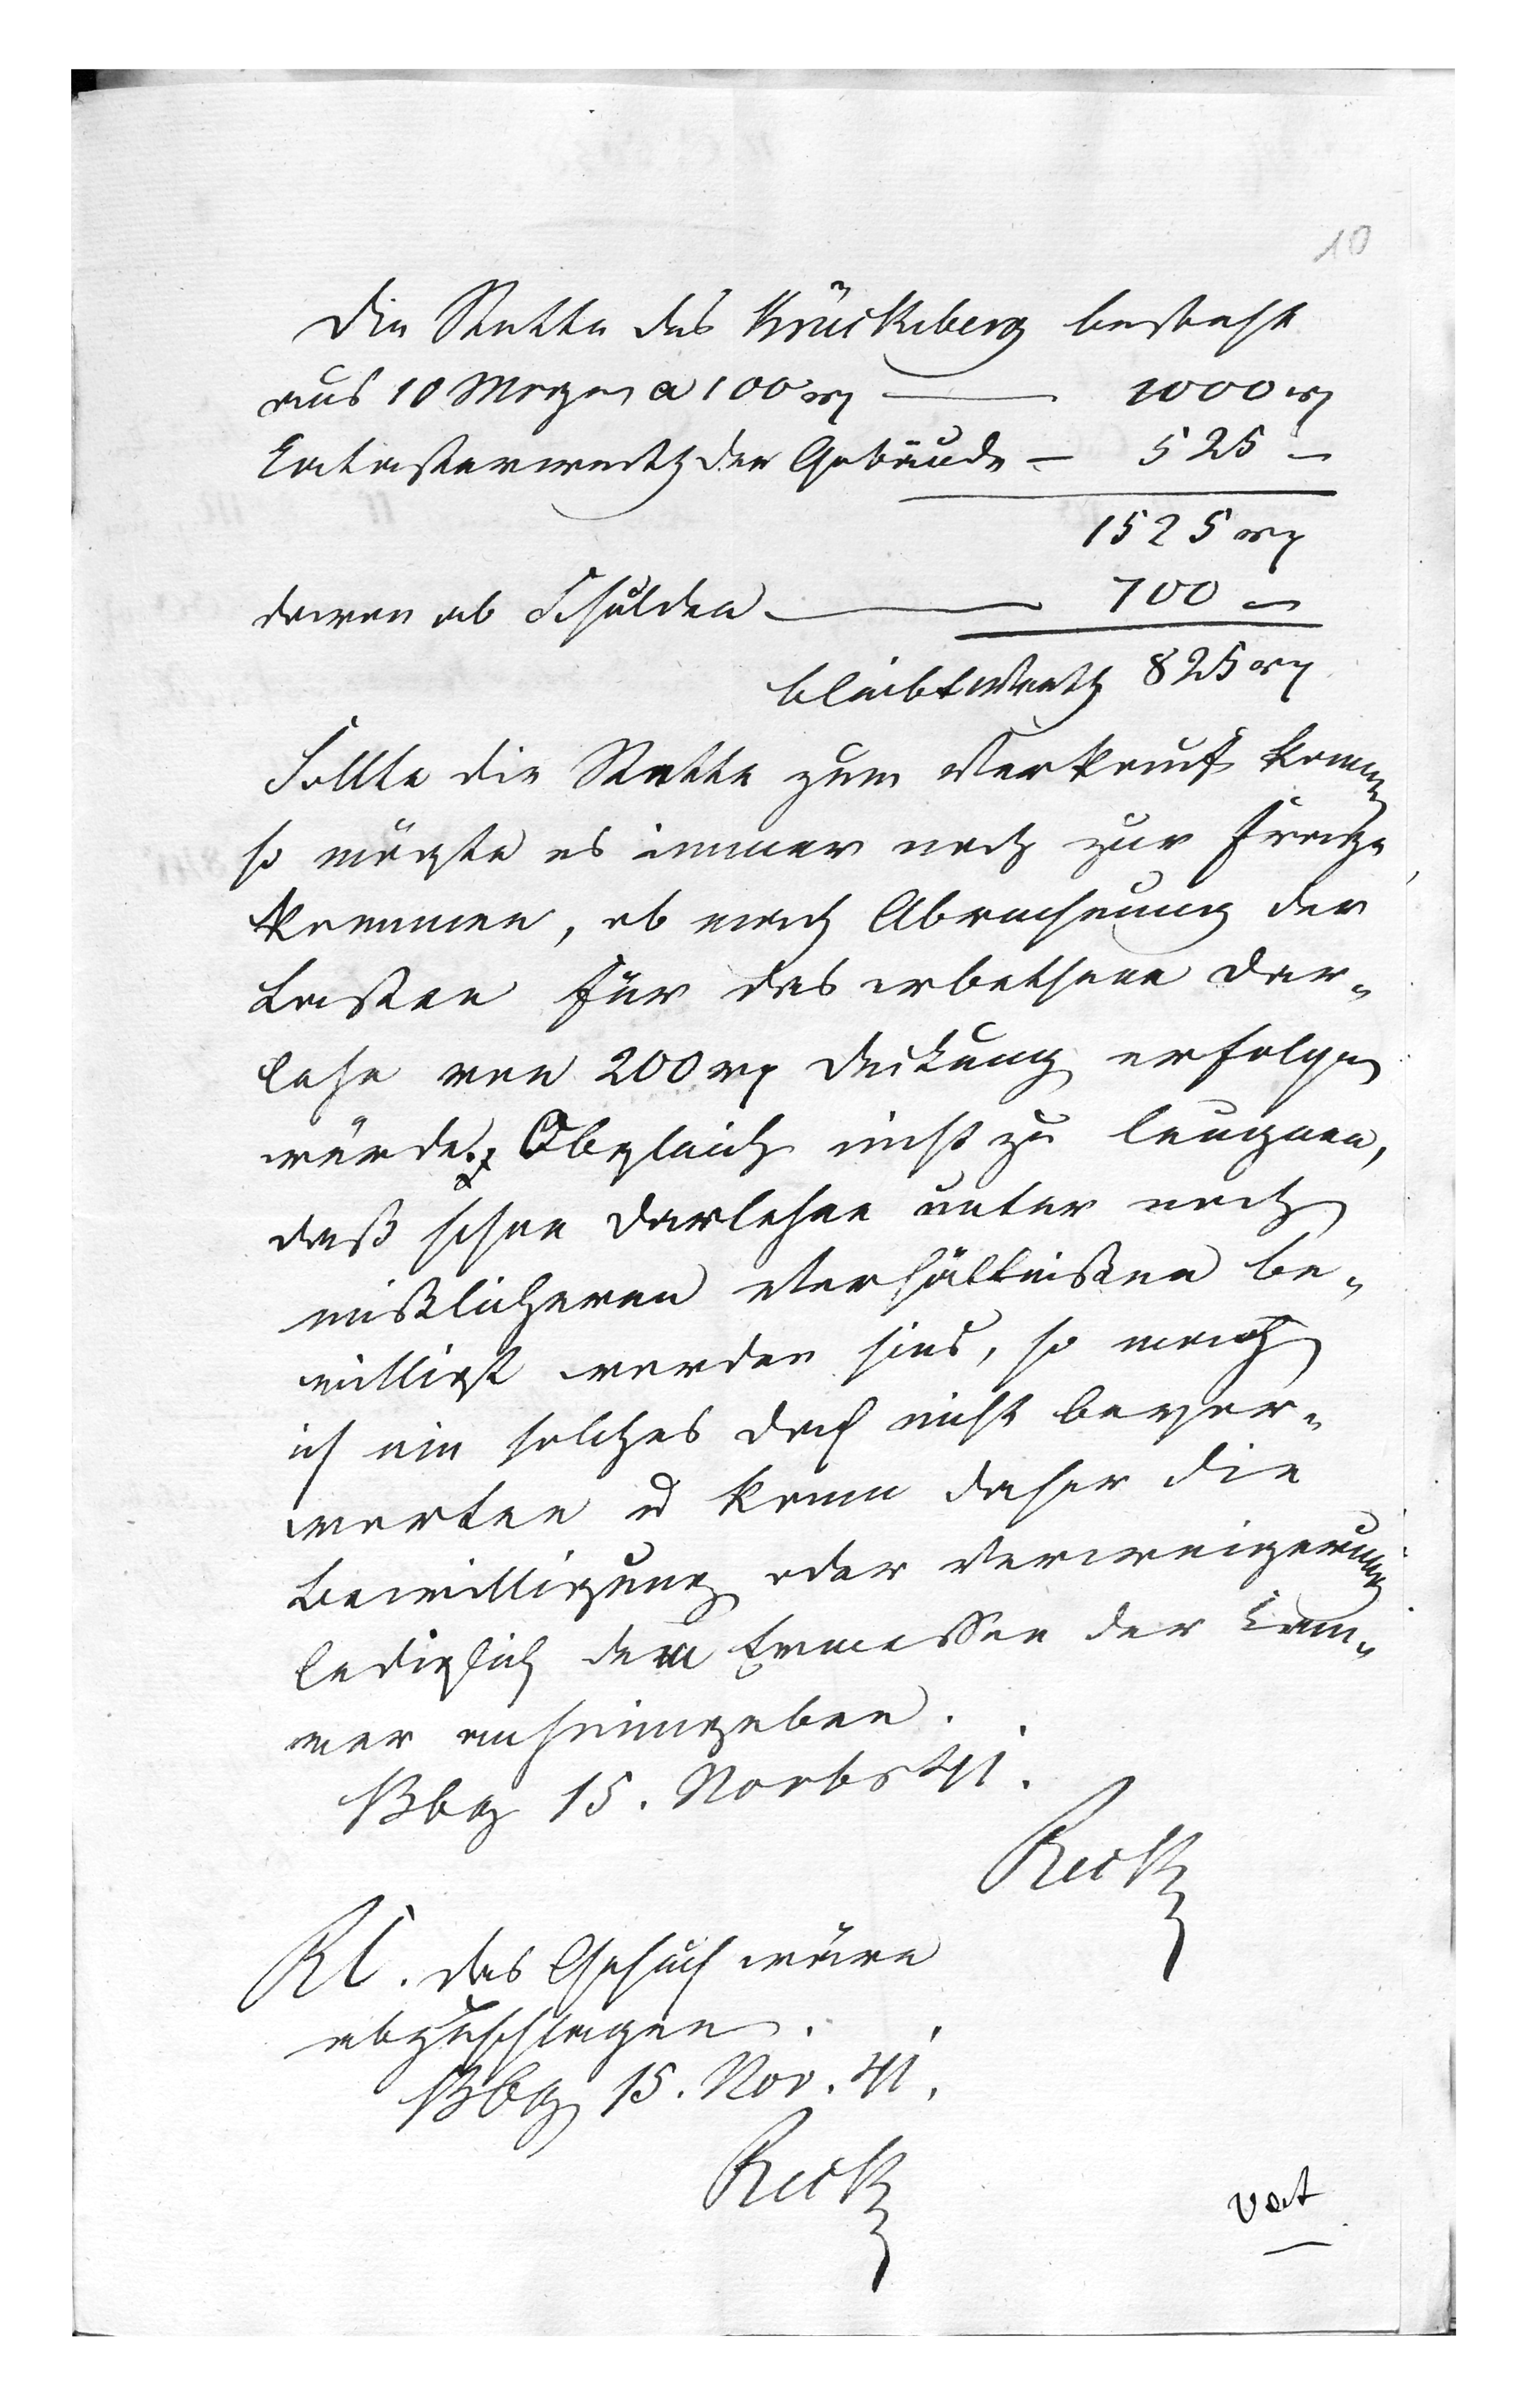 10
Die Stette des Krückeberg besteht
aus 10 Morgen a 100 rp — 1000 rp
Catasterwerth der Gebäude — 525 —
1525 rp
davon ab Schulden — 700 —
bleibt Werth 825 rp
Sollte die Stette zum Verkauf kommen
so mögte es immer noch zur Frage
kommen, ob nach Abrechnung der
Lasten für das erbethene Dar„
lehn von 200 rp Deckung erfolgen
würde. Obgleich nicht zu leugnen,
daß schon Darlehne unter noch
mißlicheren Verhältnißen be„
willigt worden sind, so mag
ich ein solches doch nicht bevor„
worten u kann daher die
Bewilligung oder Verweigerung
lediglich dem Ermessen der Cam„
mer anheimgeben.
Bbg 15. Novbr 41.
Rieck
Rl. das Gesuch wäre
abzuschlagen.
Bbg 15. Nov. 41.
Rieck
vert